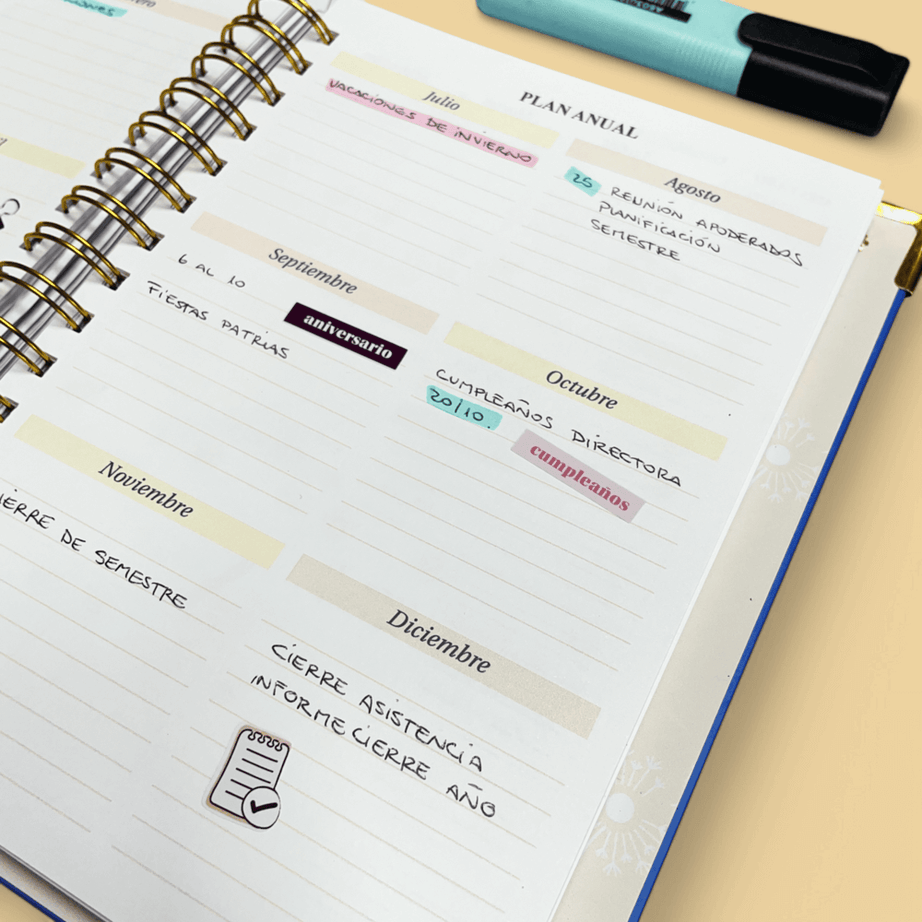 PLAN ANUAL
Julio
VACACIONES DE INVIERNO
Agosto
25 REUNIÓN APODERADOS
PLANIFICACIÓN
SEMESTRE
Septiembre
6 AL 10
FIESTAS PATRIAS
aniversario
Octubre
CUMPLEAÑOS DIRECTORA
20/10.
cumpleaños
Noviembre
DE SEMESTRE
Diciembre
CIERRE ASISTENCIA
INFORME CIERRE AÑO